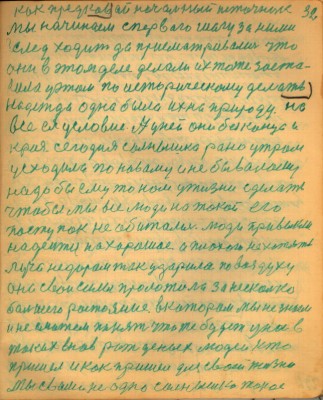 как предковай начальный источник 32.
мы начинаем с первого шагу за ними
след ходит да присматриваемся что
они в этом деле делали их тоже заста-
вила у этом по историческому делать)
надежда одна была их на природу. но
все ся условие у ней они без конца и
края сегодня солнышко рано утром
усходила по новаму и не бываламу
надо бы ему таком у жизни сделать
чтобы мы все люди на такой его
поступок не обиталися люди привыкли
надеятся на харошае а плохого не хотять
луч недором так ударила по воздуху
она свои силы пролотела за несколько
балшего растояние в катором мы не знаем
и не можем понять что то будет у нас в
таких внов рожденых людей кто
пришел и как пришел для своей жизни
мы с вами не одно солнышко такое